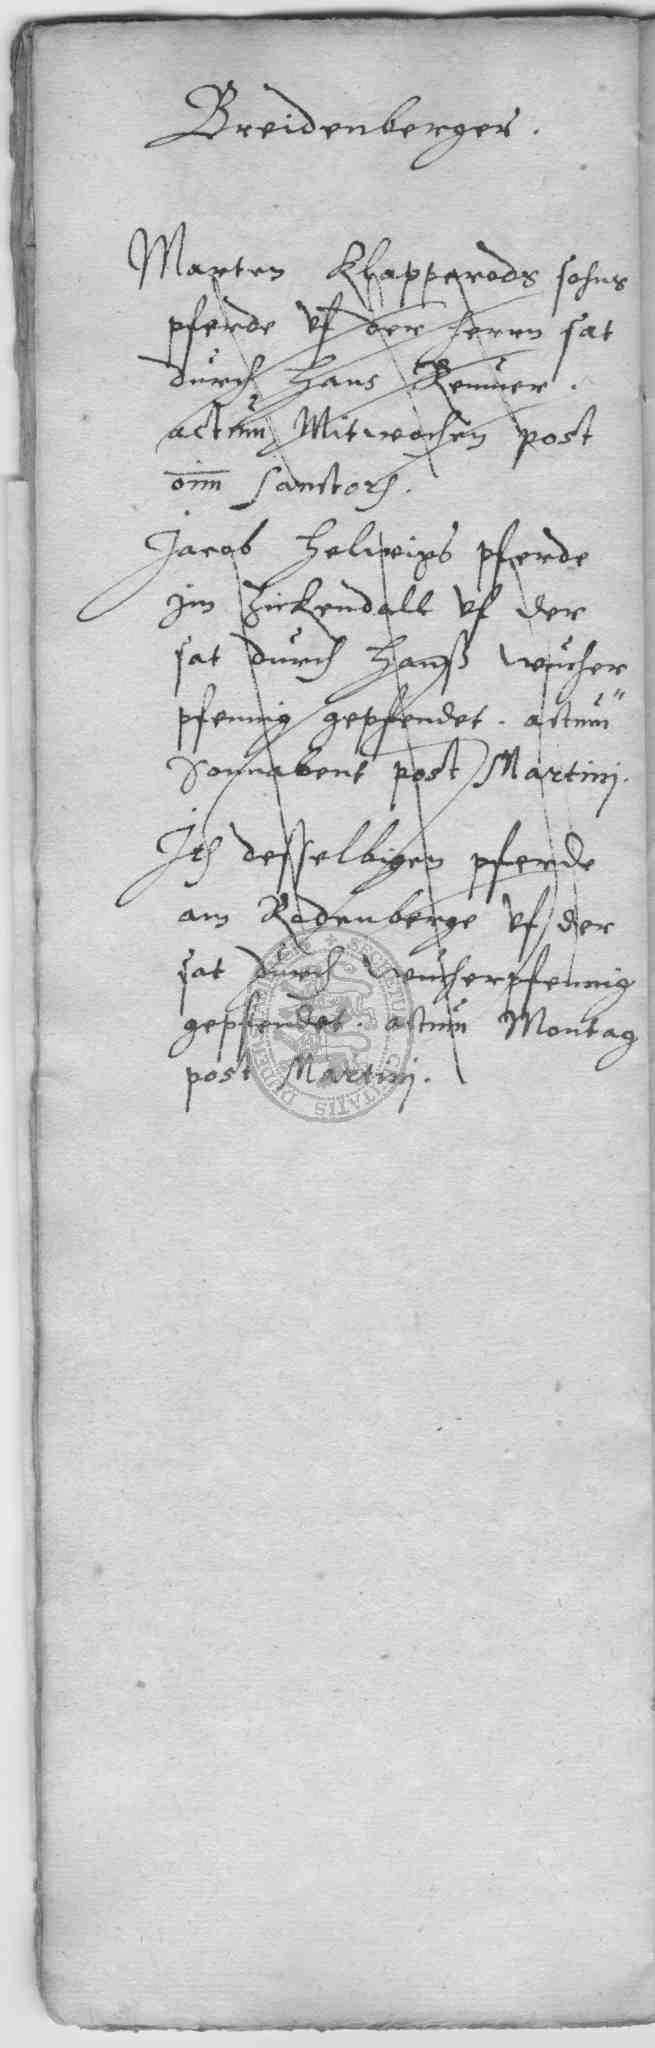 Breidenberger.
Marten Klapperods sohns
pferde vf der herrn sat
durch Hans Remmer.
actum Mitwochen post
oim Sanctorh.
Jacob Helwigs pferde
jm Hickendall vf der
sat durch Hanß wucher
pfennig gepfendet. actum
Sonnabent post Martinj.
Jth desselbigen pferde
am Rodenberge vf der
sat durch wucherpfennig
gepfendet. actum Montag
post Martinj.
SECRETUM CIVITATIS DUDERSTADENSIS